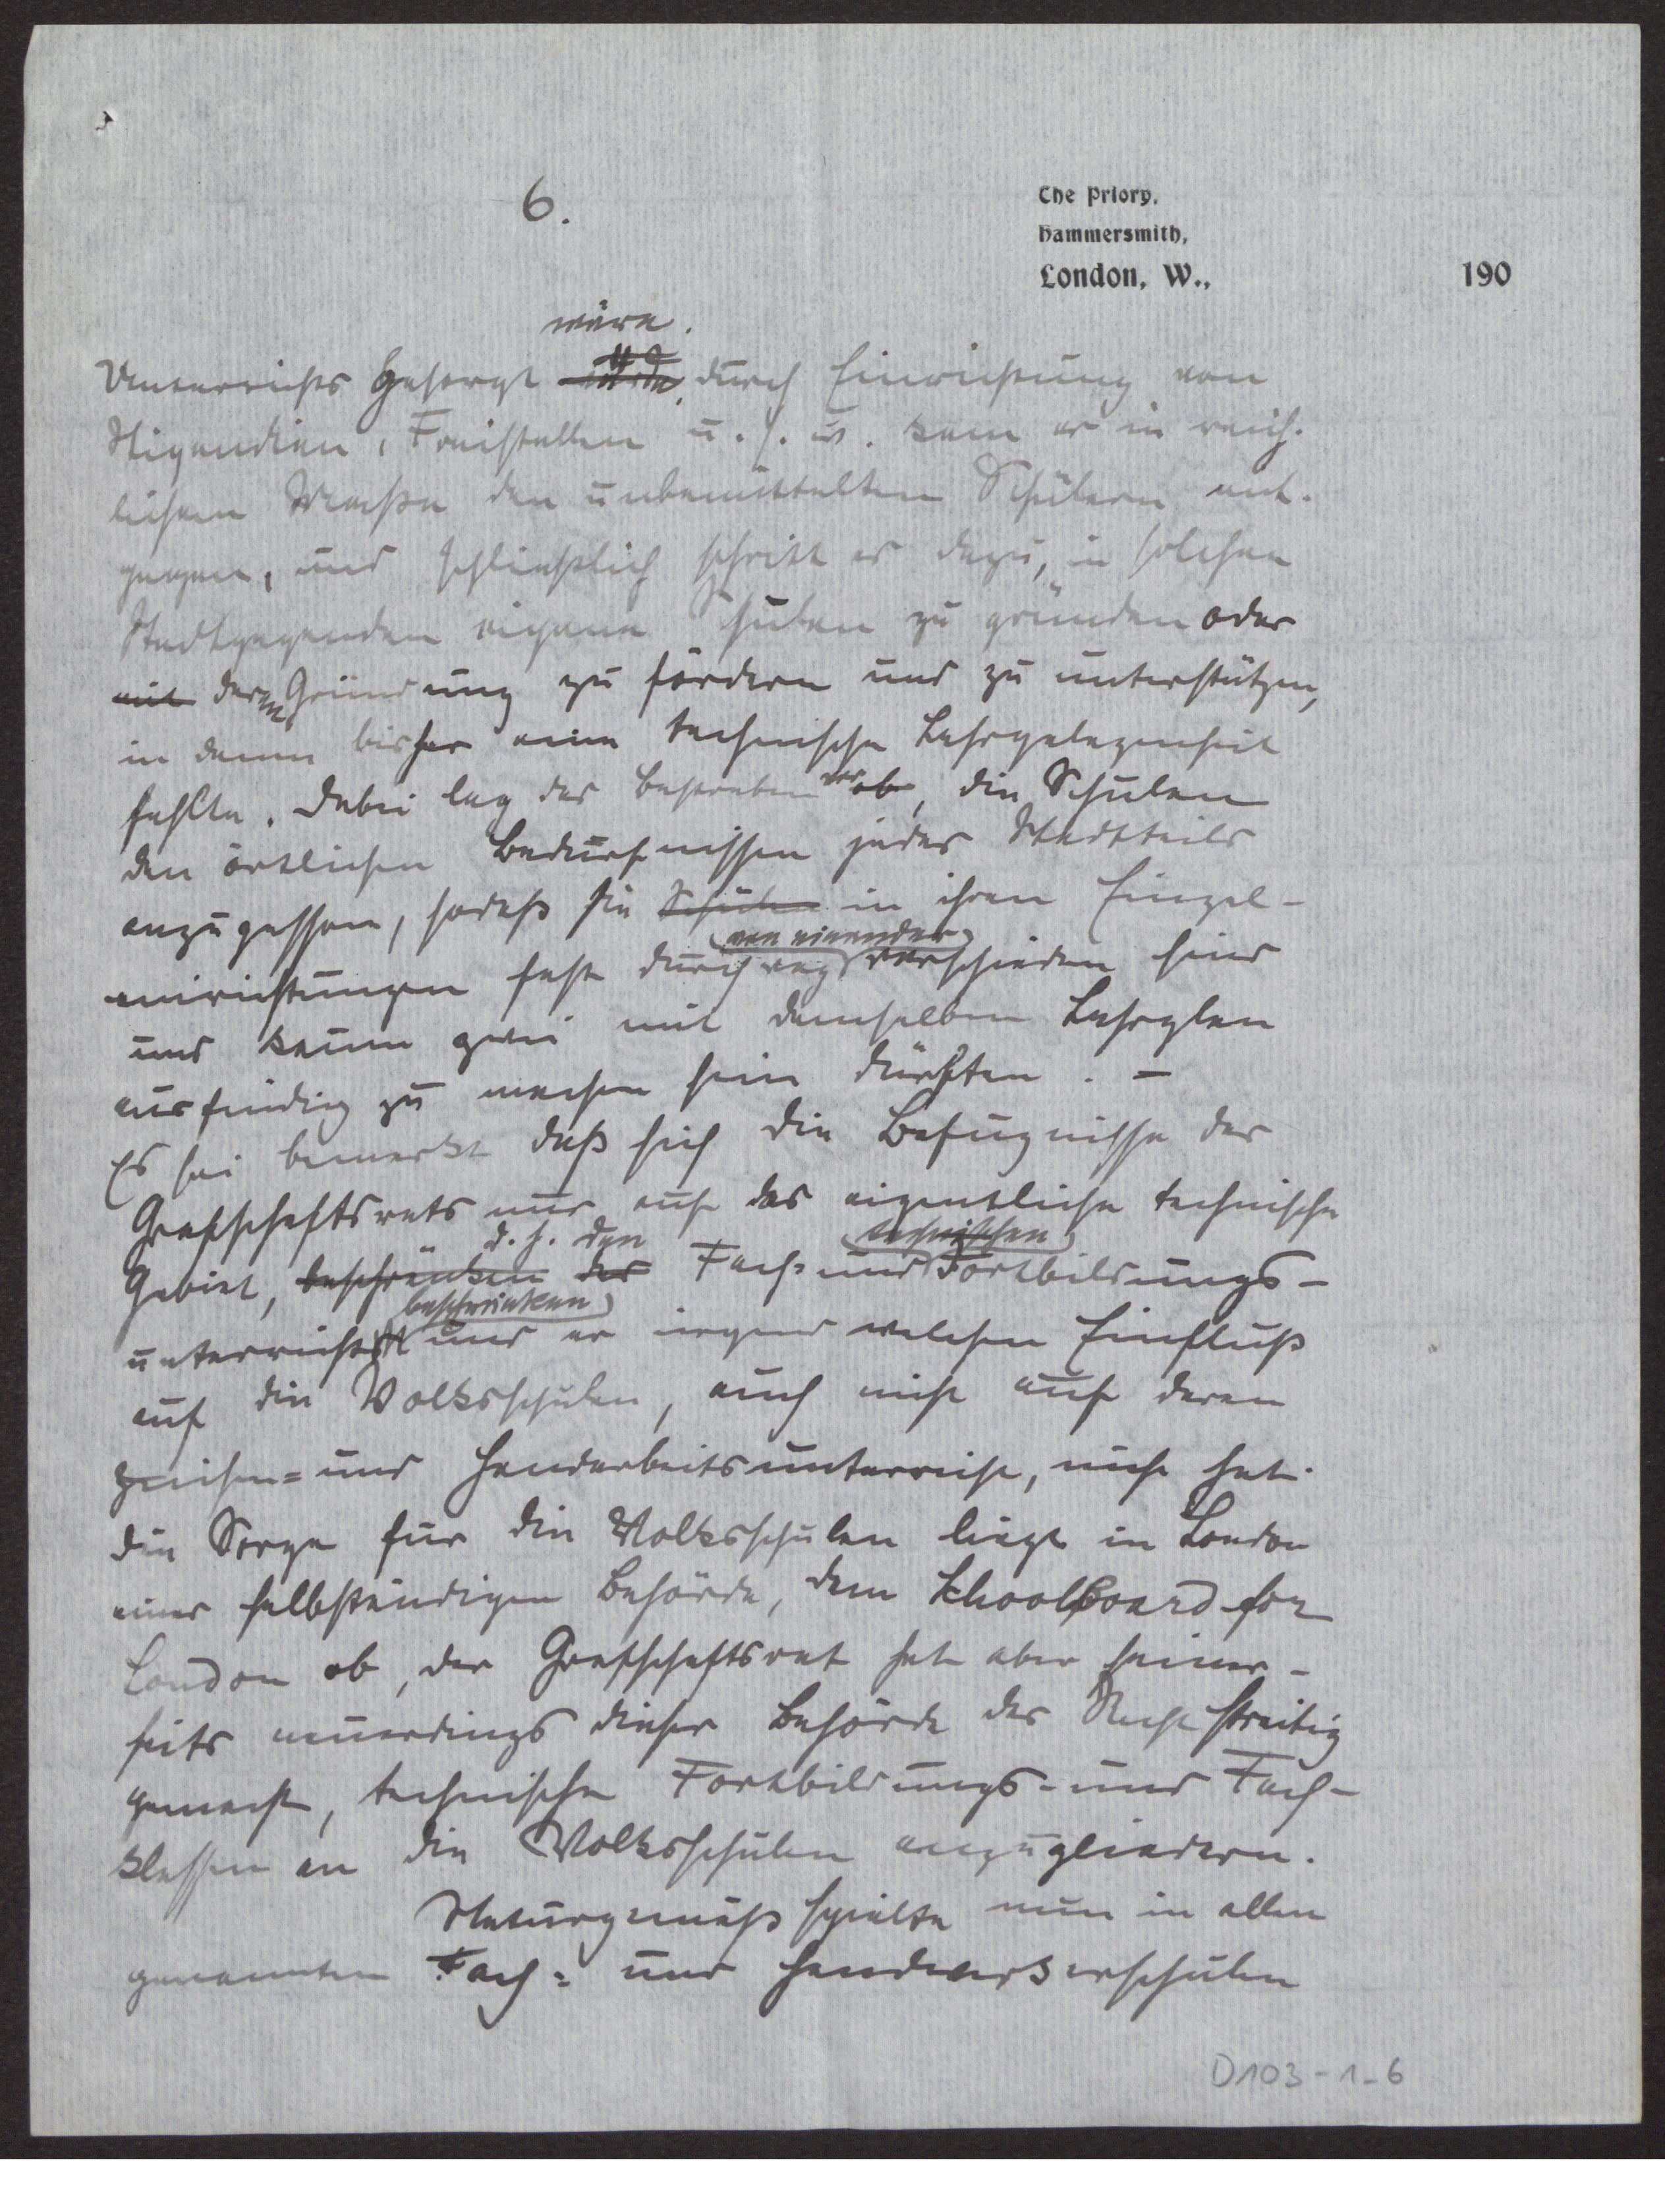 6.
The Priory,
Hammersmith,
London, W.,
190
wäre.
Unterrichts gesorgt wurde, durch Einrichtung von
Stipendien, Freistellen u. s. w. kam er in reich-
lichem Maße den unbemittelten Schülern ent-
gegen, und schließlich schritt er dazu, in solchen
Stadtgegenden eigene Schulen zu gründen oder
mit deren Gründung zu fördern und zu unterstützen,
in denen bisher eine technische Lehrgelegenheit
fehlte. Dabei lag das Bestreben vor, die Schulen
den örtlichen Bedürfnissen jedes Stadtteils
anzupassen, sodaß sie Schulen in ihren Einzel-
von einander
einrichtungen fast durchweg verschieden sind
und kaum zwei mit demselben Lehrplan
ausfindig zu machen sein dürften. –
Es sei bemerkt daß sich die Befugnisse des
Grafschaftsrats nur auf das eigentliche technische
d. h. den
technischen
Gebiet, beschränken des Fach- und Fortbildungs-
beschränken
unterricht und er irgend welchen Einfluß
auf die Volksschulen, auch nicht auf deren
Zeichen- und Handarbeitsunterricht, nicht hat.
Die Sorge für die Volksschulen liegt in London
einer selbständigen Behörde, dem Schoolboard for
London ob, der Grafschaftsrat hat aber seiner-
seits neuerdings dieser Behörde das Recht streitig
gemacht, technische Fortbildungs- und Fach-
klassen an die Volksschulen anzugliedern.
Naturgemäß spielte nun in allen
genannten Fach- und Handwerkerschulen
D103-1-6